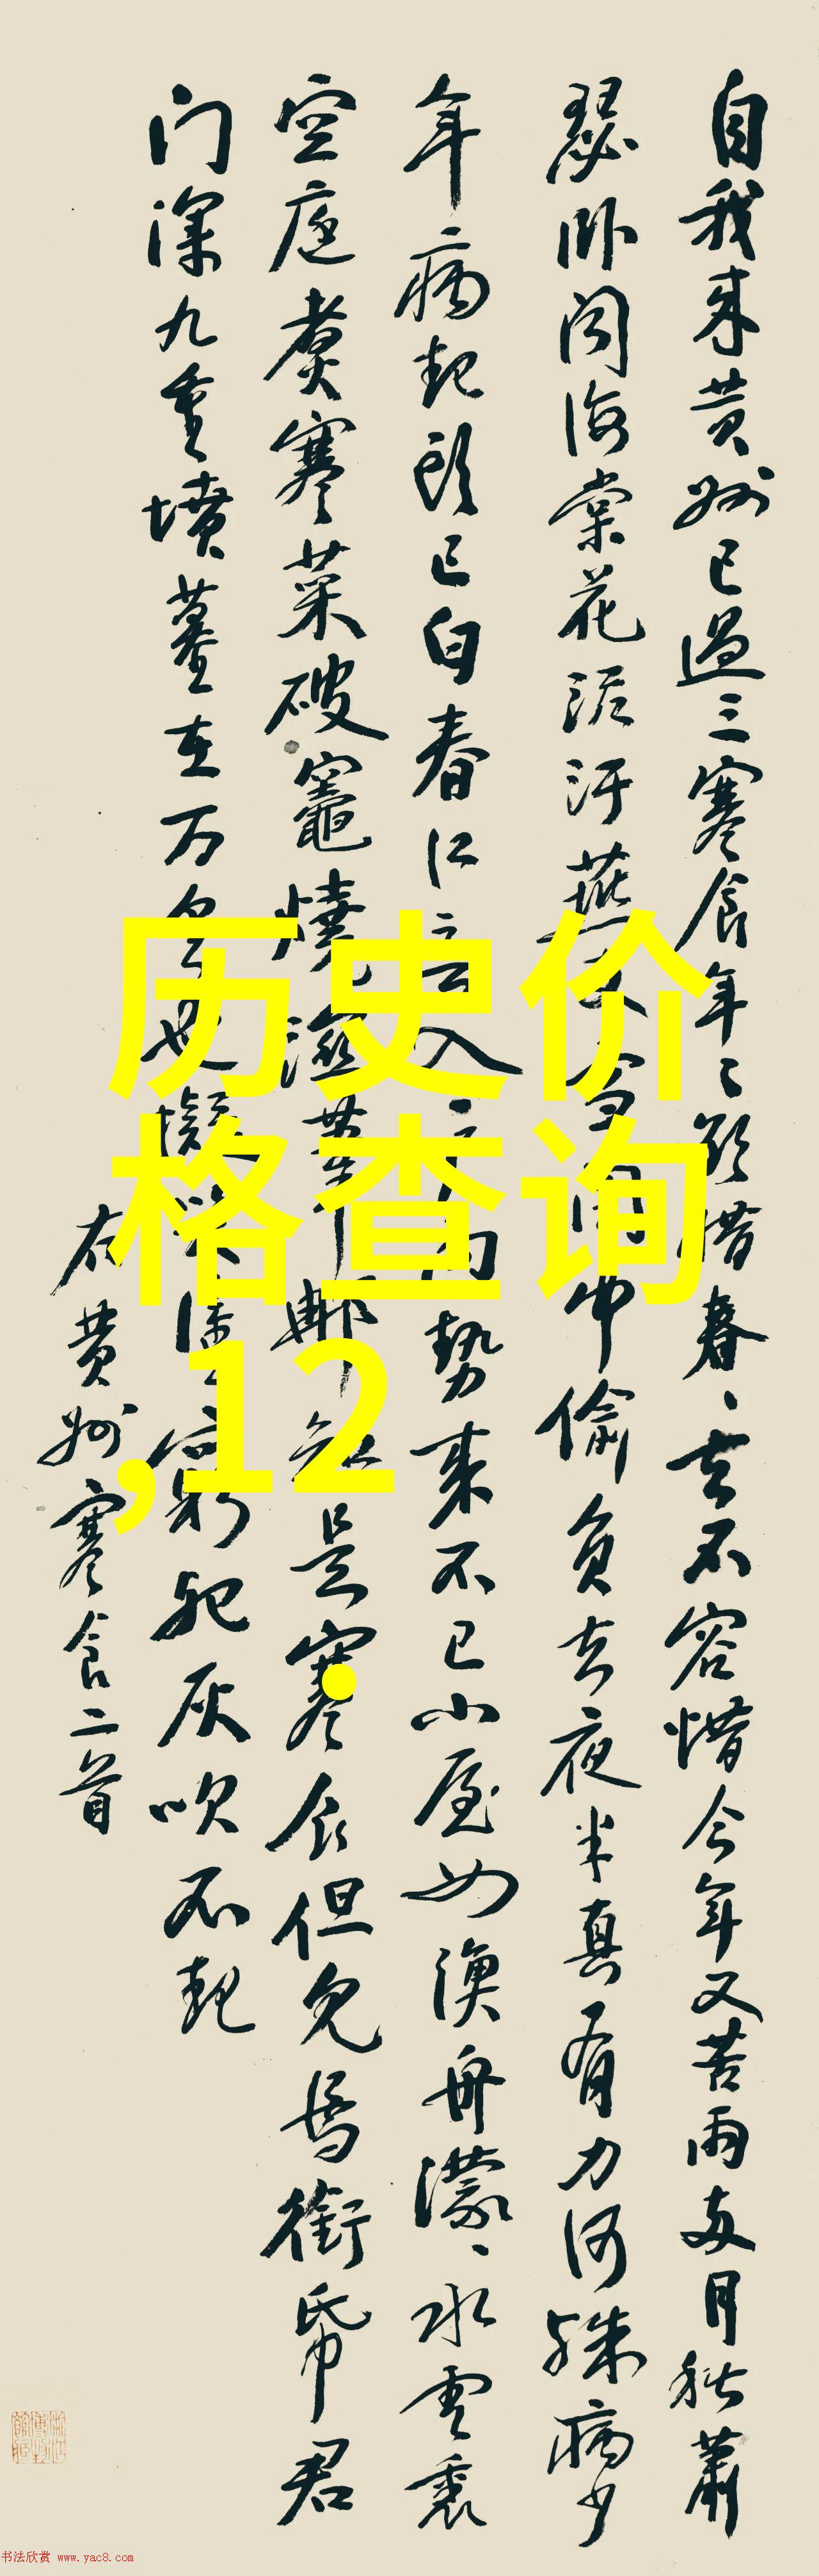 自我来黄州已過三寒食年々欲惜春、去不容惜今年又苦雨两月秋蕭
瑟卧闻海棠花泥汙燕支雪闇中偷負去夜半真有力何殊病少
年病起頭已白春江欲入户雨勢来不已小屋如漁舟濛、水雲裏
空庖煮寒菜破竈燒濕葦那知是寒食但見烏銜帋君
门深九重墳墓在万里也擬哭塗窮死灰吹不起
右黄州寒食二首
历史价
格查询
,12
.
书法欣赏 www.yac8.com